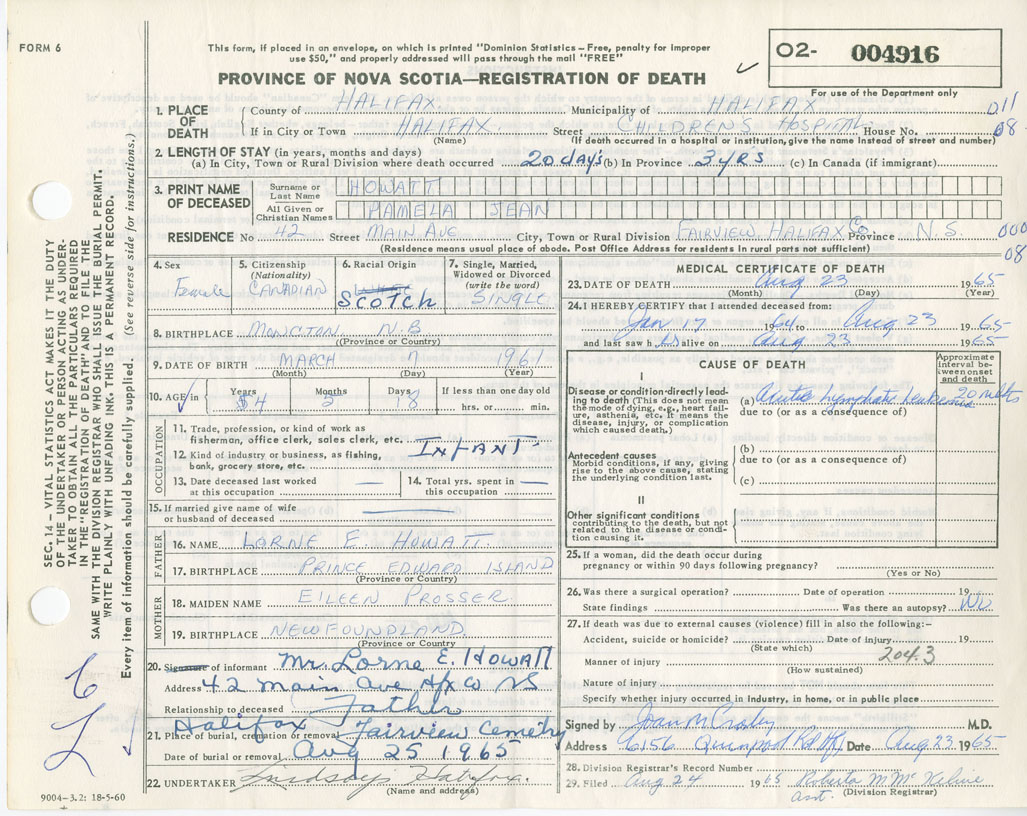 FORM 6
This form, if placed in an envelope, on which is printed "Dominion Statistics—Free, penalty for improper
use $50," and properly addressed will pass through the mail "FREE"
PROVINCE OF NOVA SCOTIA—REGISTRATION OF DEATH
O2- 004916
For use of the Department only
1. PLACE OF DEATH
County of HALIFAX Municipality of HALIFAX 011
If in City or Town HALIFAX Street CHILDRENS HOSPITAL House No. 08
(Name) (If death occurred in a hospital or institution, give the name instead of street and number)
2. LENGTH OF STAY (in years, months and days)
(a) In City, Town or Rural Division where death occurred 20 days (b) In Province 3 yrs (c) In Canada (if immigrant)
3. PRINT NAME OF DECEASED
Surname or Last Name HOWATT
All Given or Christian Names PAMELA JEAN
RESIDENCE No 42 Street MAIN AVE City, Town or Rural Division FAIRVIEW, HALIFAX Co. Province N.S. 000
(Residence means usual place of abode. Post Office Address for residents in rural parts not sufficient) 08
4. Sex Female
5. Citizenship (Nationality) CANADIAN
6. Racial Origin SCOTCH
7. Single, Married, Widowed or Divorced (write the word) SINGLE
8. BIRTHPLACE MONCTAN N.B
(Province or Country)
9. DATE OF BIRTH MARCH 7 1961
(Month) (Day) (Year)
10. AGE in Years 4 Months Days 18 If less than one day old
hrs. or min.
OCCUPATION
11. Trade, profession, or kind of work as
fisherman, office clerk, sales clerk, etc. INFANT
12. Kind of industry or business, as fishing,
bank, grocery store, etc.
13. Date deceased last worked
at this occupation —
14. Total yrs. spent in
this occupation —
15. If married give name of wife
or husband of deceased —
FATHER
16. NAME LORNE E. HOWATT
17. BIRTHPLACE PRINCE EDWARD ISLAND
(Province or Country)
MOTHER
18. MAIDEN NAME EILEEN PROSSER
19. BIRTHPLACE NEWFOUNDLAND
(Province or Country)
20. Signature of informant Mr. Lorne E. Howatt
Address 42 Main Ave Hfx Co NS
Relationship to deceased Father
21. Place of burial, cremation or removal Halifax Fairview Cemetry
Date of burial or removal Aug 25 1965
22. UNDERTAKER Lindsay's Halifax.
(Name and address)
9004-3.2: 18-5-60
MEDICAL CERTIFICATE OF DEATH
23. DATE OF DEATH Aug 23 1965
(Month) (Day) (Year)
24. I HEREBY CERTIFY that I attended deceased from:
Jan 17 1964 to Aug 23 1965
and last saw h alive on Aug 23 1965
CAUSE OF DEATH
Approximate interval between onset and death
I
Disease or condition directly leading to death (This does not mean the mode of dying, e.g., heart failure, asthenia, etc. It means the disease, injury, or complication which caused death.)
(a) Acute Lymphatic Leukemia 20 mths
due to (or as a consequence of)
Antecedent causes
Morbid conditions, if any, giving rise to the above cause, stating the underlying condition last.
(b)
due to (or as a consequence of)
(c)
II
Other significant conditions
contributing to the death, but not related to the disease or condition causing it.
25. If a woman, did the death occur during
pregnancy or within 90 days following pregnancy?
(Yes or No)
26. Was there a surgical operation? Date of operation 19
State findings Was there an autopsy? No
27. If death was due to external causes (violence) fill in also the following:—
Accident, suicide or homicide? Date of injury 19
(State which) 204.3
Manner of injury
(How sustained)
Nature of injury
Specify whether injury occurred in industry, in home, or in public place
Signed by Joan M Crosby M.D.
Address 6156 Quinpool Rd Hfx Date Aug 23 1965
28. Division Registrar's Record Number
29. Filed Aug 24 1965 Roberta M
asst. (Division Registrar)
SEC. 14 – VITAL STATISTICS ACT MAKES IT THE DUTY
OF THE UNDERTAKER OR PERSON ACTING AS UNDER-
TAKER TO OBTAIN ALL THE PARTICULARS REQUIRED
IN THE "REGISTRATION OF DEATH" AND TO FILE THE
SAME WITH THE DIVISION REGISTRAR WHO SHALL ISSUE THE BURIAL PERMIT.
WRITE PLAINLY WITH UNFADING INK. THIS IS A PERMANENT RECORD.
Every item of information should be carefully supplied. (See reverse side for instructions.)